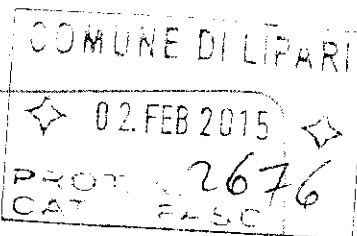 COMUNE DI LIPARI
02. FEB 2015
PROT. 2676
CAT FASC